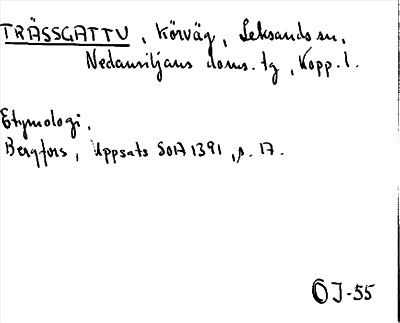 TRÄSSGATTU, Körväg, Leksands sn,
Nedansiljans doms. tg, Kopp. l.
Etymologi.
Bergfors, Uppsats SOA 1391, s. 17.
OJ-55